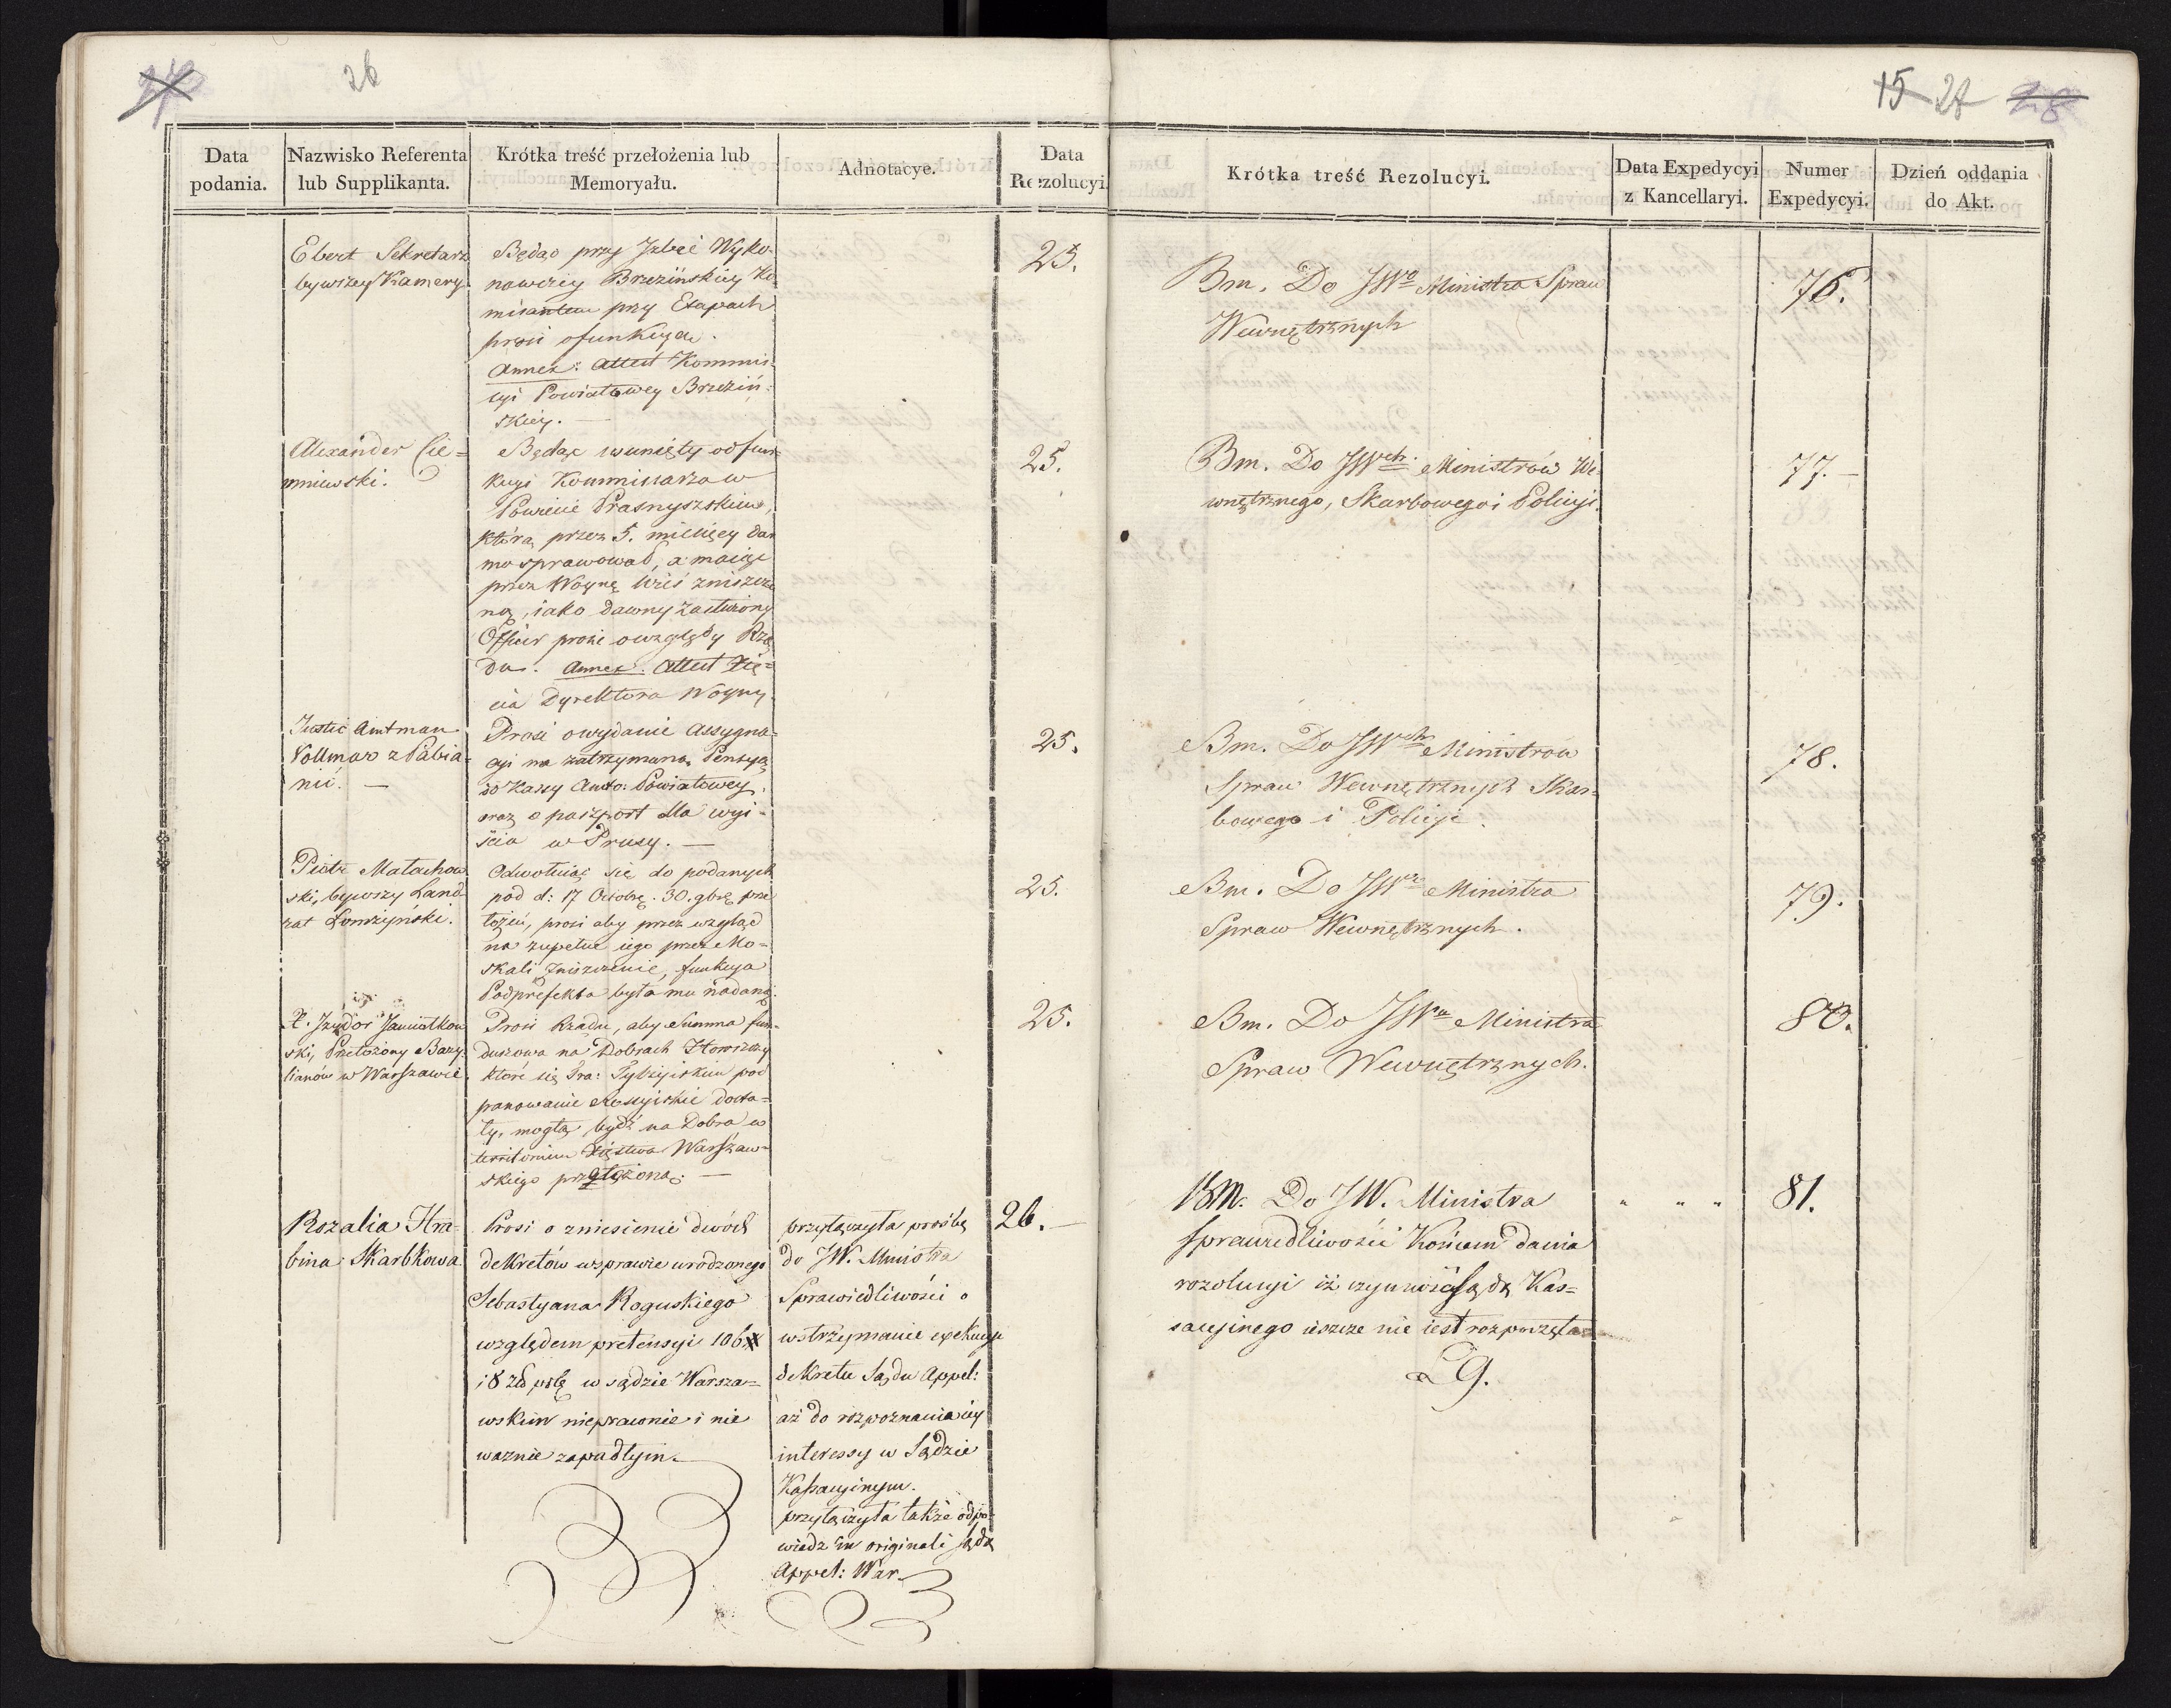 26
15 27 28
Data podania.
Nazwisko Referenta lub Supplikanta.
Krótka treść przełożenia lub Memoryału.
Adnotacye.
Data Rezolucyi.
Krótka treść Rezolucyi.
Data Expedycyi z Kancellaryi.
Numer Expedycyi.
Dzień oddania do Akt.
Ebert Sekretarz
bywszey Kamery.
Będąc przy Izbie Wyko-
nawczey Brzezińskiey Ko-
misantem przy Etapach
prosi o funkcyą.
Annex: Attest Kommis-
syi Powiatowey Brzeziń-
skiey. —
25.
Bm. Do JWo Ministra Spraw
Wewnętrznych
76.
Alexander Cie=
mniewski.
Będąc usunięty od funk
kcyi Kommissarza w
Powiecie Prasnyszskim,
którą przez 5. miesięcy dar
mo sprawował, a maiąc
przez Woynę wieś zniszczo
ną, iako dawny zasłużony
Officier prosi o względy Rzą
du. Annex. Attest Xię=
cia Dyrektora Woyny.
25.
Bm. Do JWch. Ministrów We-
wnętrznego, Skarbowego i Policyi.
77. —
Justic Amtman
Vollmar z Pabia-
nic. —
Prosi o wydanie Assygna-
cyi na zatrzymaną Pensyą
do Kassy Powiatowey,
oraz o paszport dla wyi-
ścia w Prusy. —
25.
Bm. Do JWch Ministrow
Spraw Wewnętrznych Skar=
bowego i Policyi.
78.
Piotr Małachow
ski, bywszy Land
rat Łomżyński.
Odwołuiąc się do podanych
pod d: 17 Octobr. 30. 9brę prze
łożeń, prosi aby przez wzgląd
na zupełne iego przez Mo=
skali zniszczenie, funkcya
Podprefekta była mu nadaną.
25.
Bm. Do JWo Ministra
Spraw Wewnętrznych.
79.
X. Izydor Jamiołkow
ski, Przełożony Bazy-
lianów w Warszawie.
Prosi Rządu, aby Summa fun-
duszowa na Dobrach
które się Tra: Tylżyckim pod
panowanie Rossyiskie dosta=
ły, mogła bydź na Dobra w
territorium Xięstwa Warszaw-
skiego przełożoną. —
25.
Bm. Do JWo Ministra
Spraw Wewnętrznych.
80.
Rozalia Hra-
bina Skarbkowa
Prosi o zniesienie dwóch
dekretów w sprawie urodzonego
Sebastyana Roguskiego
względem pretensyi 106 #
i 8 zł polę w sądzie Warsza=
wskim nieprawnie i nie
ważnie zapadłym.
przyłączyła prośbę
do JW. Ministra
Sprawiedliwości o
wstrzymanie exekucyi
dekretu Sądu Appel:
aż do rozpoznania iey
interessy w Sądzie
Kassacyinym.
przyłączyła także odpo-
wiedz in originali Sądu
Appel: War.
26. —
BM. Do JW. Ministra
Sprawiedliwości końcem dania
rozolucyi iż czynność Sądu Kas=
sacyinego ieszcze nie iest rozpoczęta
LG.
" " "
81.